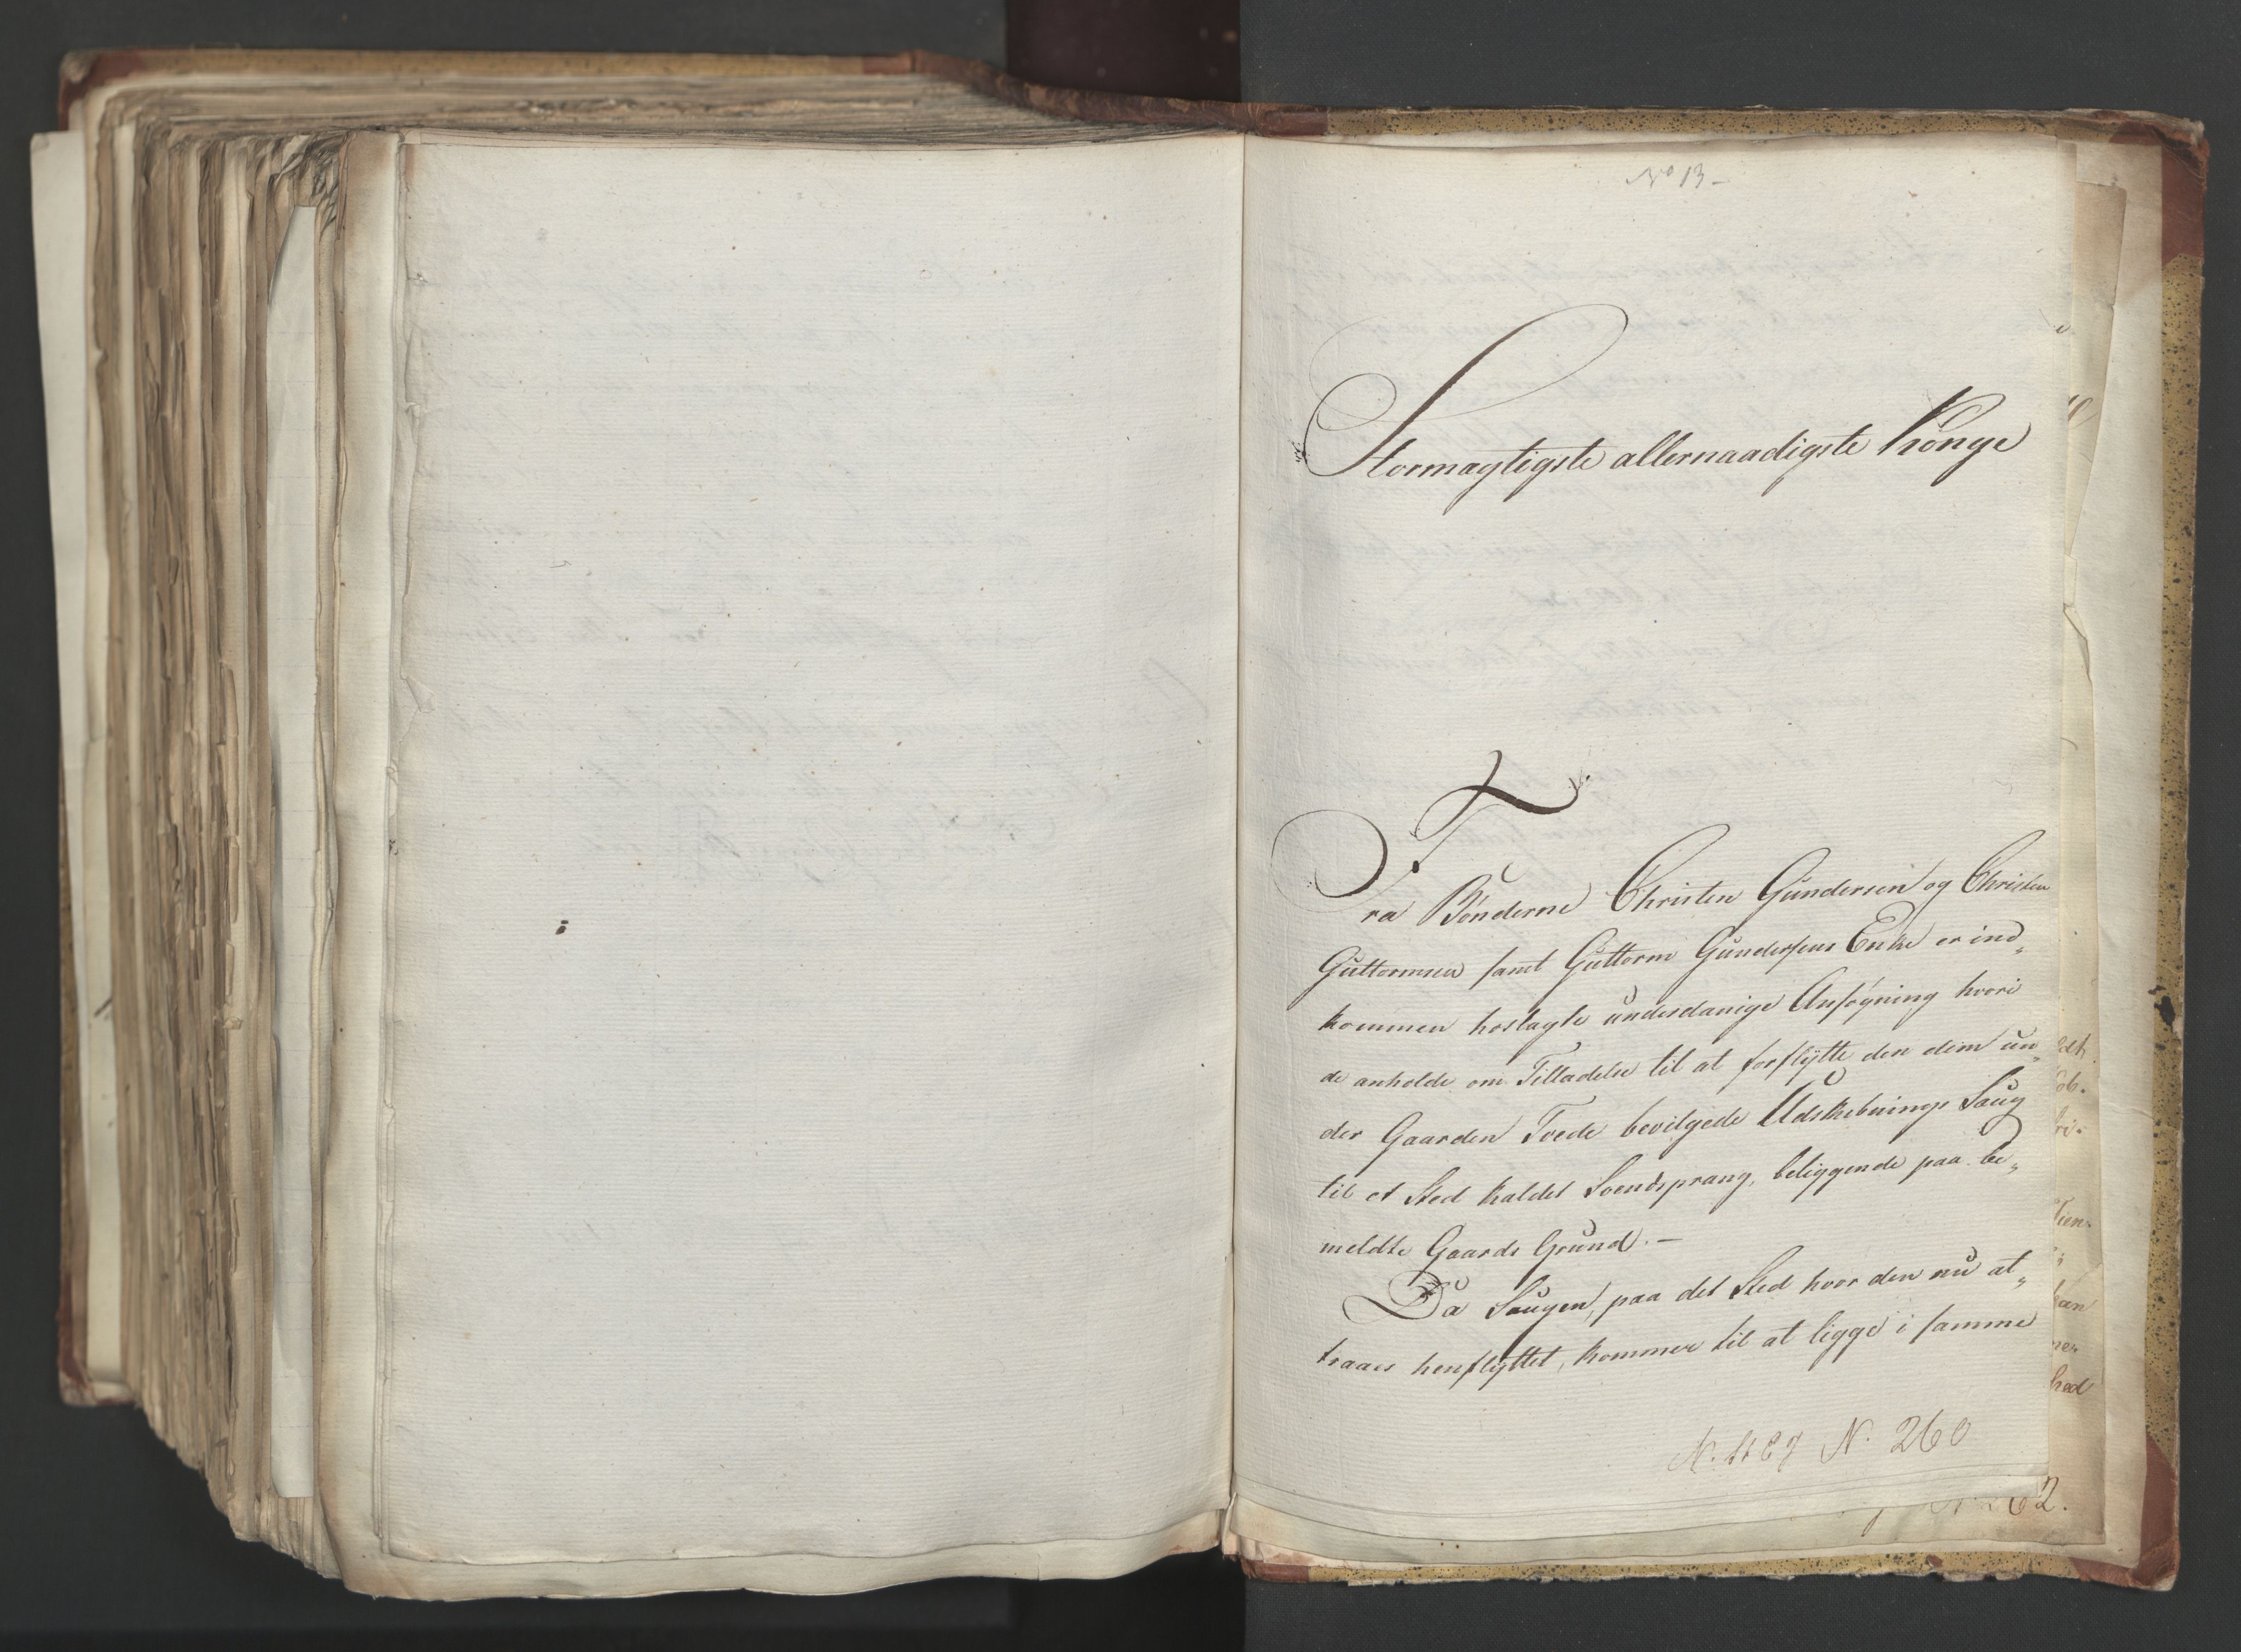 No 13 –
Stormægtigste allernaadigste Konge
Fra Bønderne Christen Gundersen og Christen
Guttormsen samt Guttorm Gundersens Enke er ind„
kommen hoslagte underdanige Ansøgning hvori
de anholde om Tilladelse til at forflytte den dem un„
der Gaarden Tvede bevilgede Udskibnings Saug
til et Sted kaldet Svendsprang, beliggende paa be„
meldte Gaards Grund. –
Da Saugen, paa det Sted hvor den nu at„
traaes henflyttet, kommer til at ligge i samme
N. 260